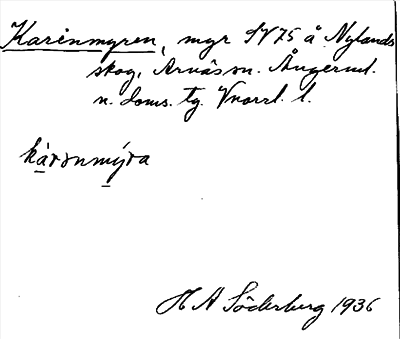 Karinmyren, mgr SV75 å Nylands
skog, Arnäs sn. Ångerml.
n. doms. tg. Vnorrl. l.
káronmýra
H A Söderberg 1936